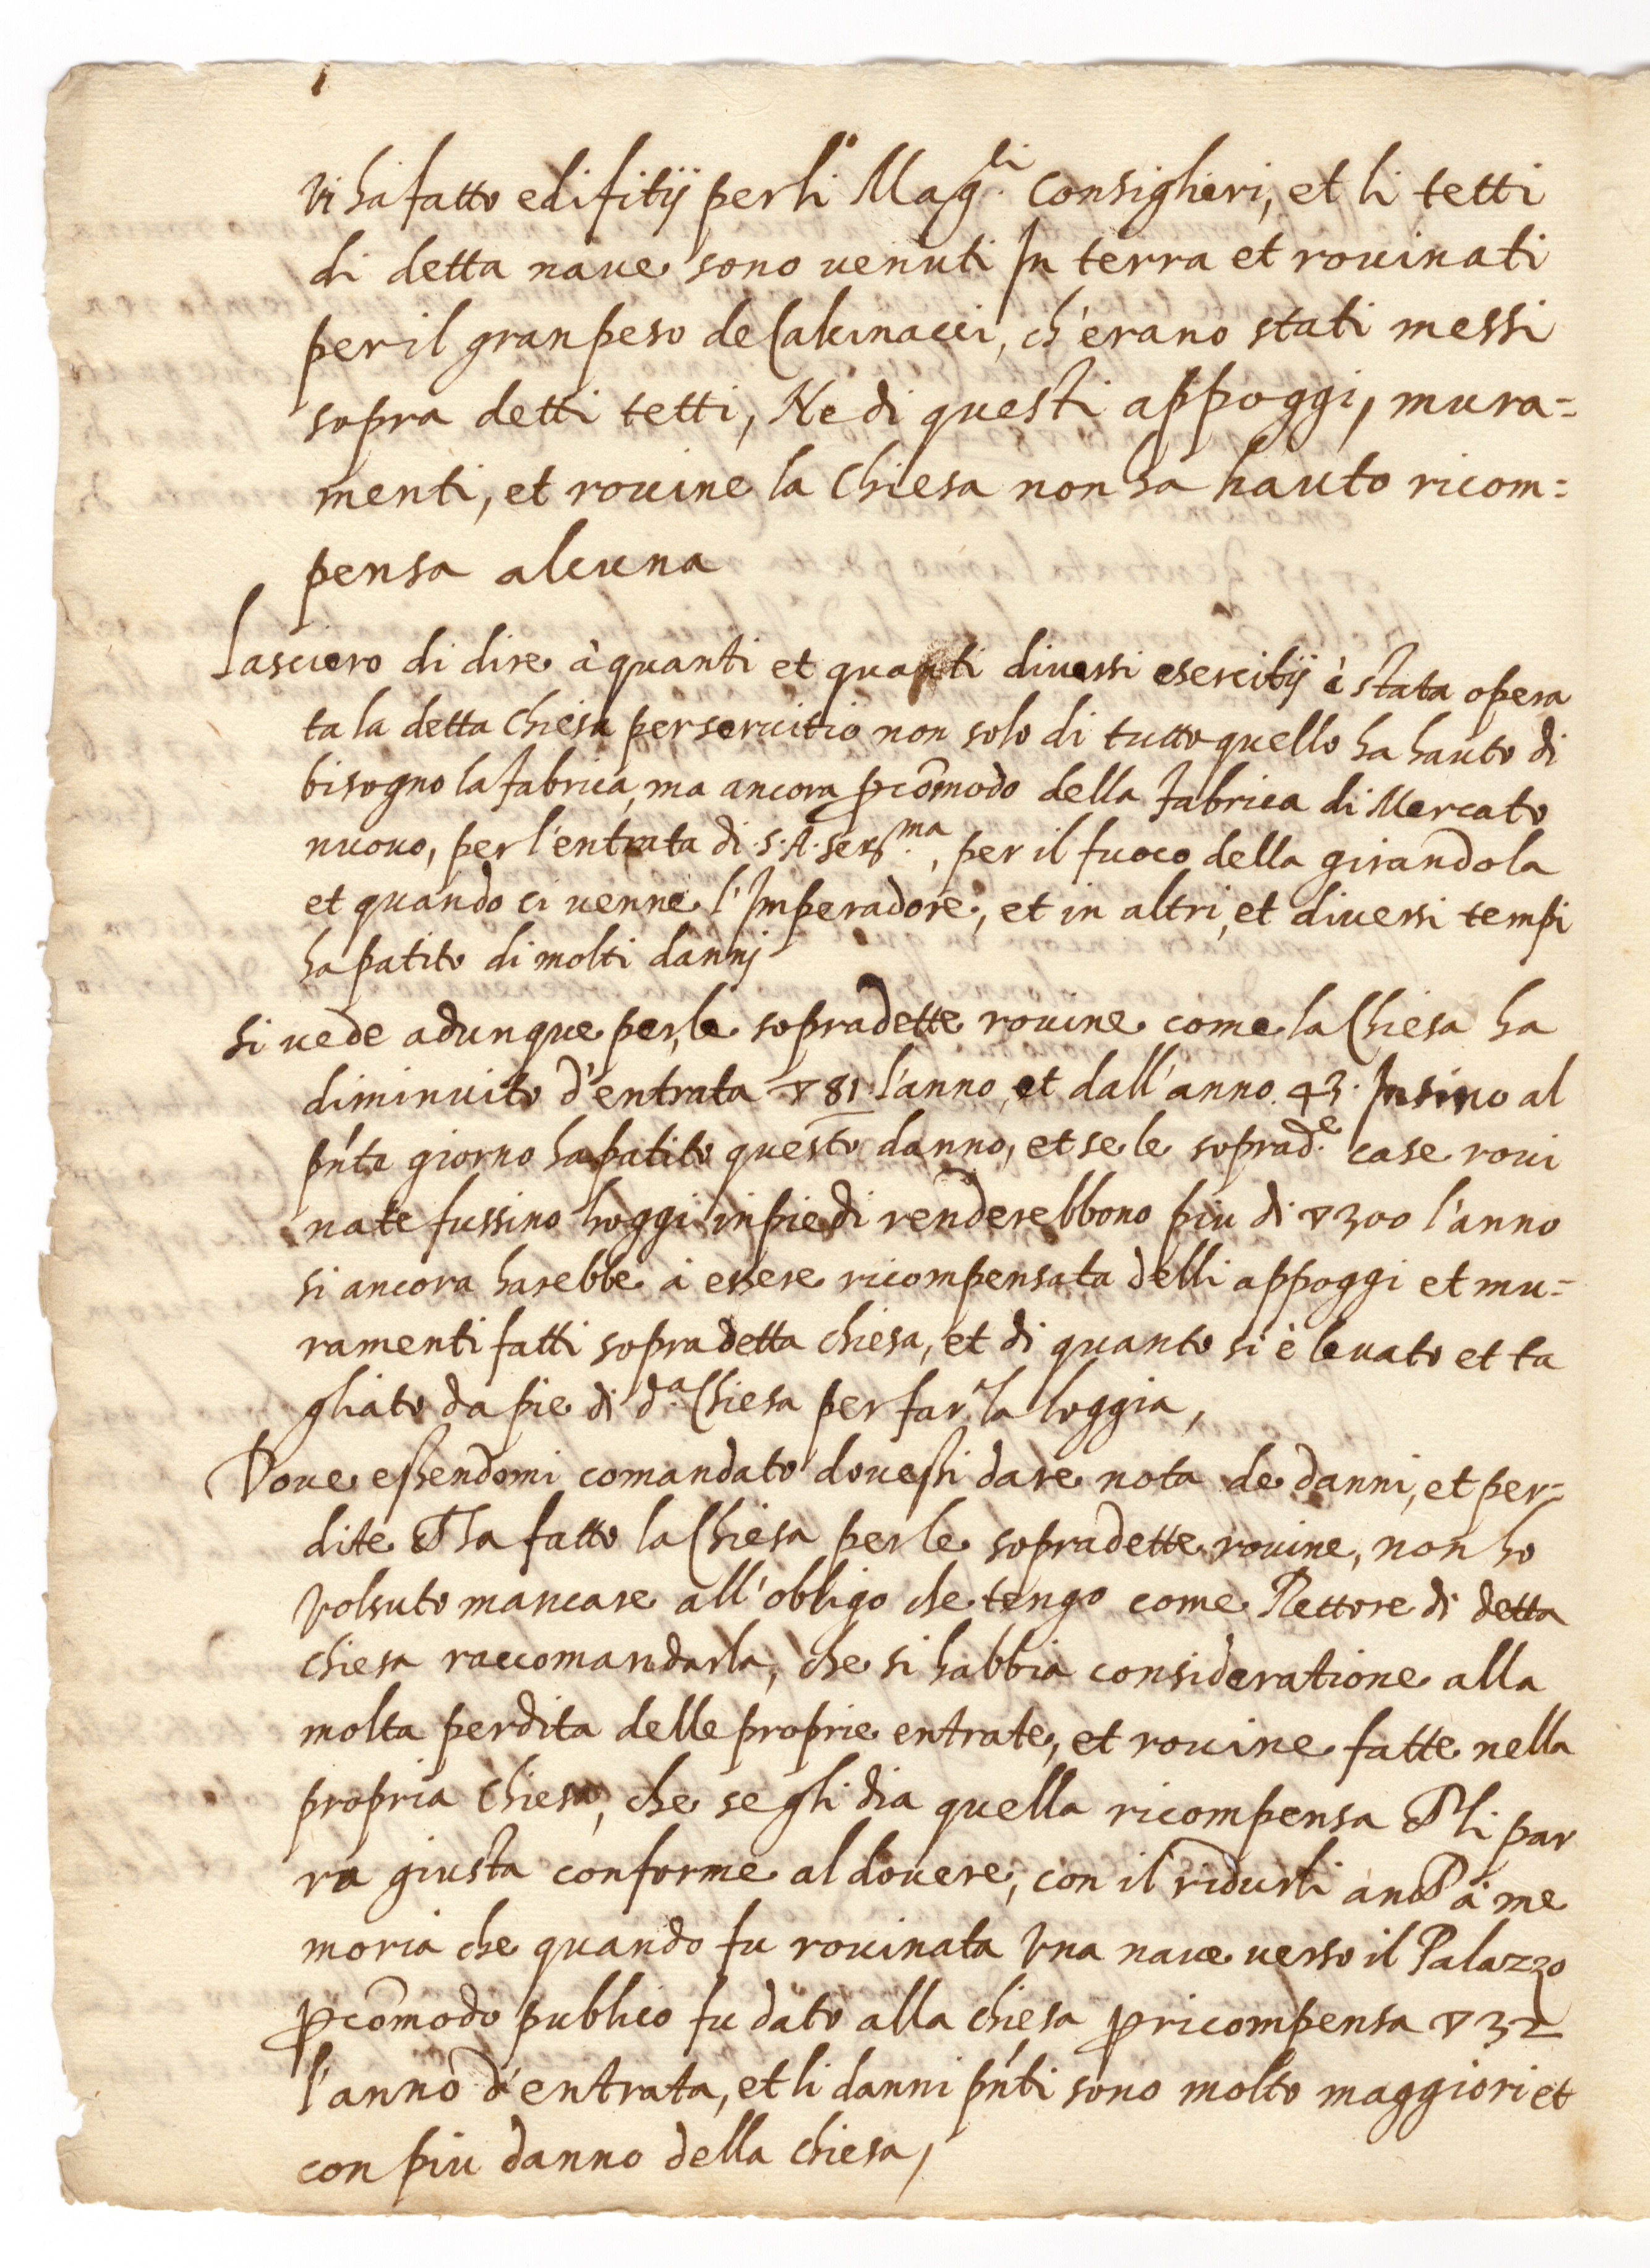 Vi ha fatto edifitij per li Mag.li Consiglieri, et li tetti
di detta naue sono uenuti In terra et rouinati
per il gran peso de Calcinacci, ch'erano stati messi
sopra detti tetti, Ne di questi appoggi, mura=
menti, et rouine la Chiesa non ha hauto ricom=
pensa alcuna
Lasciero di dire à quanti et quanti diuersi esercitij è stata opera
ta la detta Chiesa per seruitio non solo di tutto quello ha hauto di
bisogno la fabrica, ma ancora p cõmodo della fabrica di Mercato
nuouo, per l'entrata di S. A. Ser.ma, per il fuoco della girandola
et quando ci uenne l'Imperadore, et in altri, et diuersi tempi
ha patito di molti dannj
Si uede adunque per le sopradette rouine come la Chiesa ha
diminuito d'entrata ▽ 81 l'anno, et dall'anno 43. Insino al
pñte giorno ha patito questo danno, et se le soprad.e case roui
nate fussino hoggi in piedi renderebbono piu di ▽ 300 l'anno
si ancora harebbe à essere ricompensata delli appoggi et mu=
ramenti fatti sopra detta chiesa, et di quanto si è leuato et ta
gliato da pie di d.a Chiesa per far la loggia,
Doue essendomi comandato douessi dare nota de danni, et per=
dite ch ha fatto la Chiesa per le sopradette rouine, non ho
Volsuto mancare all'obligo che tengo come Rettore di detta
chiesa raccomandarla, che si habbia consideratione alla
molta perdita delle proprie entrate, et rouine fatte nella
propria Chiesa, che se gli dia quella ricompensa ch li par
ra giusta conforme al douere, con il ridurli anch à me
moria che quando fu rouinata Vna naue uerso il Palazzo
p cõmodo publico fu dato alla chiesa p ricompensa ▽ 32
l'anno d'entrata, et li danni pñti sono molto maggiori et
con piu danno della chiesa,